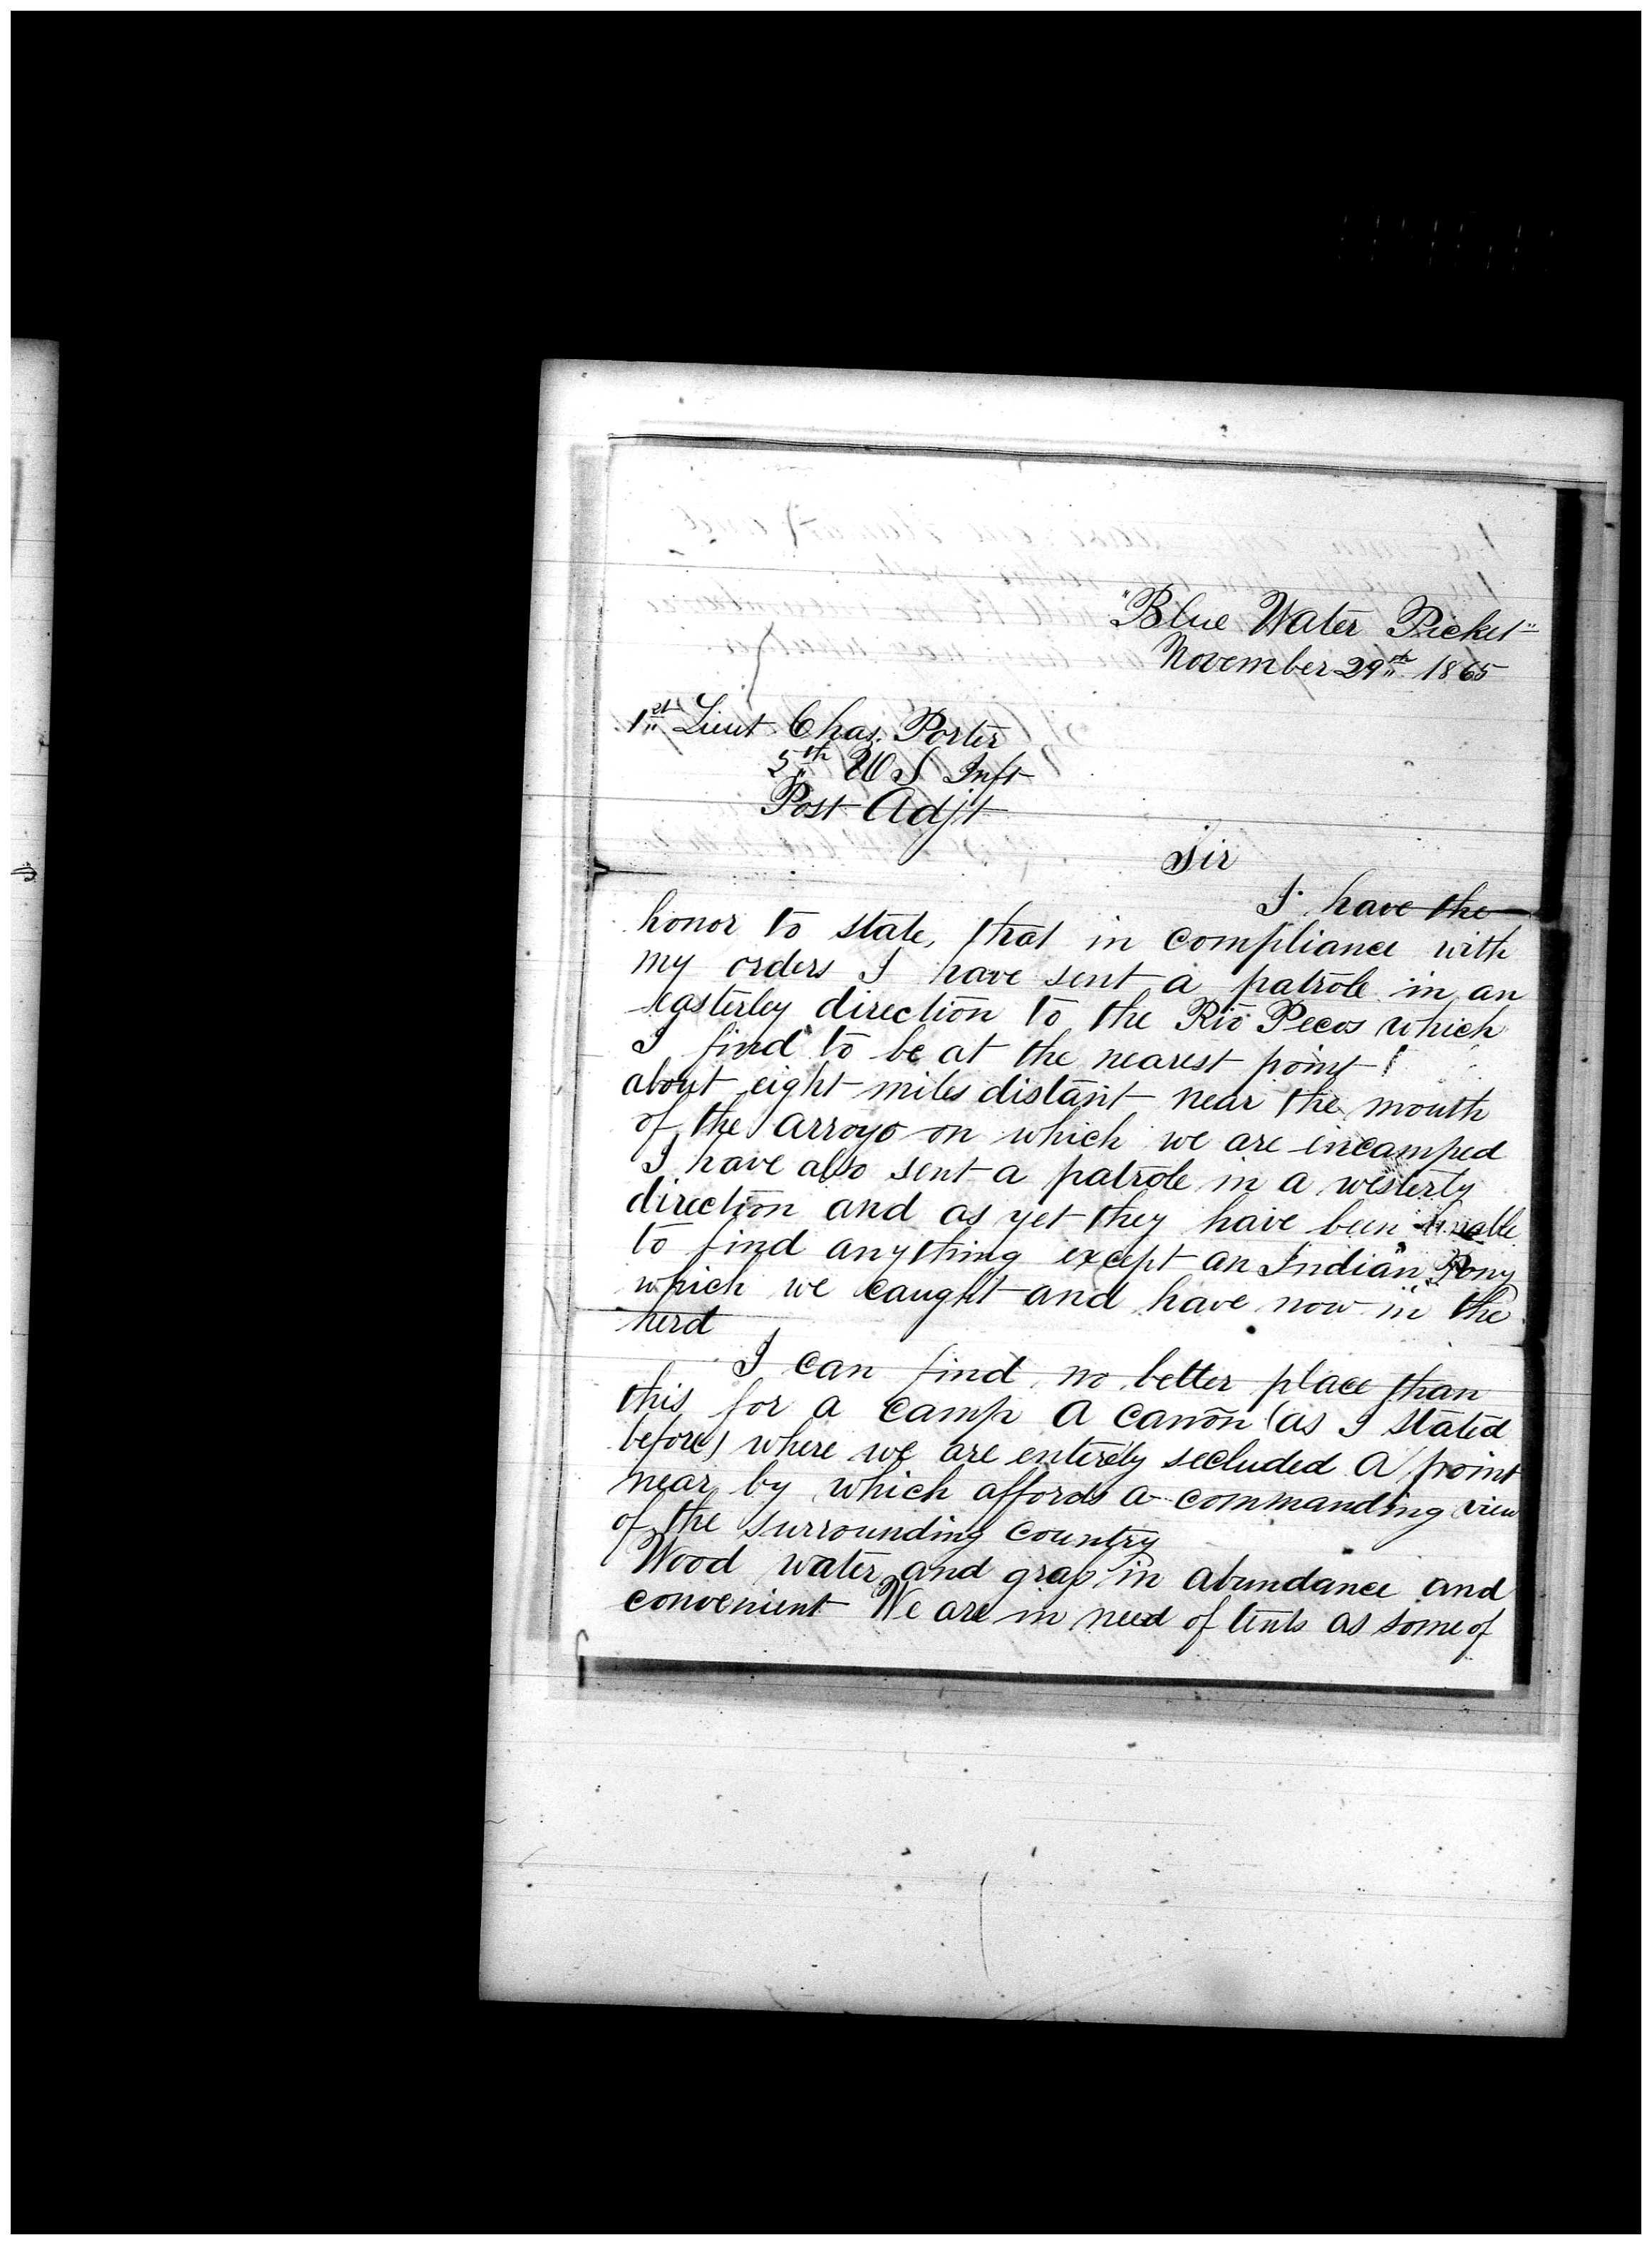 "Blue Water Picket"
November 29th 1865
1st Lieut Chas. Porter
5th U S Inft
Post Adjt
Sir
I have the
honor to state, that in compliance with
my orders I have sent a patrole in an
easterley direction to the Rio Pecos which
I find to be at the nearest point
about eight miles distant near the mouth
of the arroyo on which we are encamped
I have also sent a patrole in a westerly
direction and as yet they have been unable
to find anything except an Indian Pony
which we caught and have now in the
herd
I can find no better place than
this for a camp A cañon (as I stated
before) where we are entirely secluded A point
near by which affords a commanding view
of the surrounding country
Wood water and grass in abundance and
convenient We are in need of tents as some of